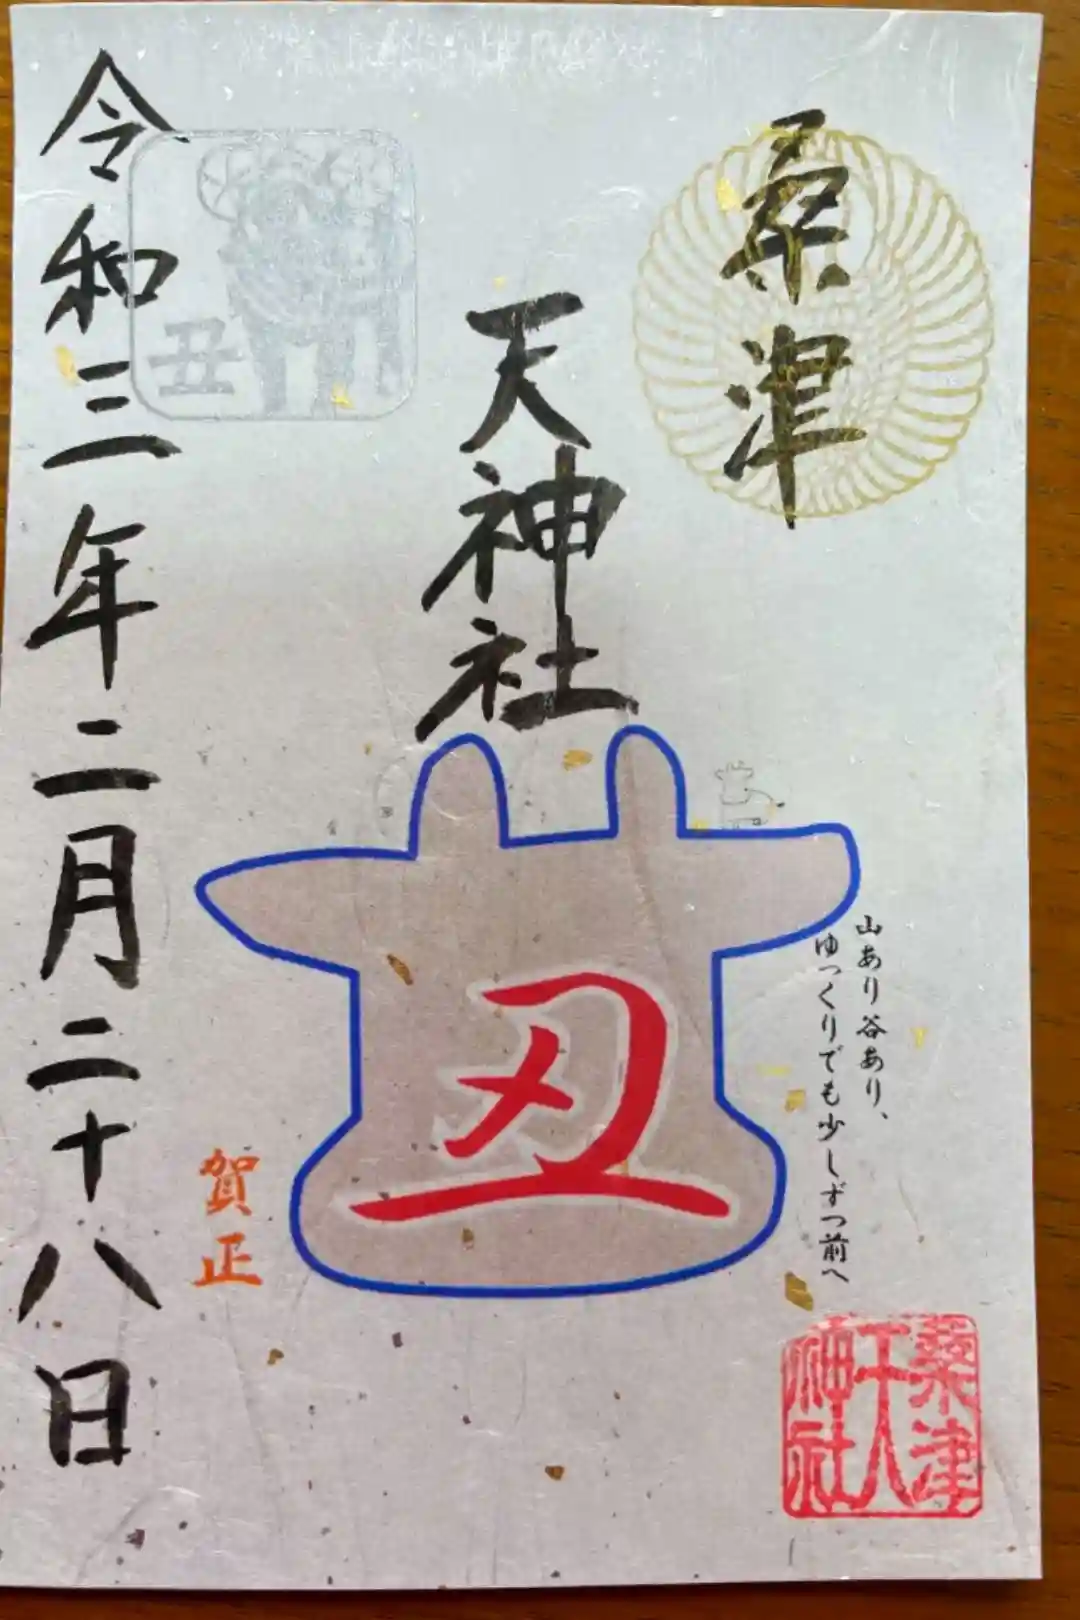 桑津
天神社
山あり谷あり、
ゆっくりでも少しずつ前へ
丑
丑
賀正
令和三年二月二十八日
桑津
天
神社